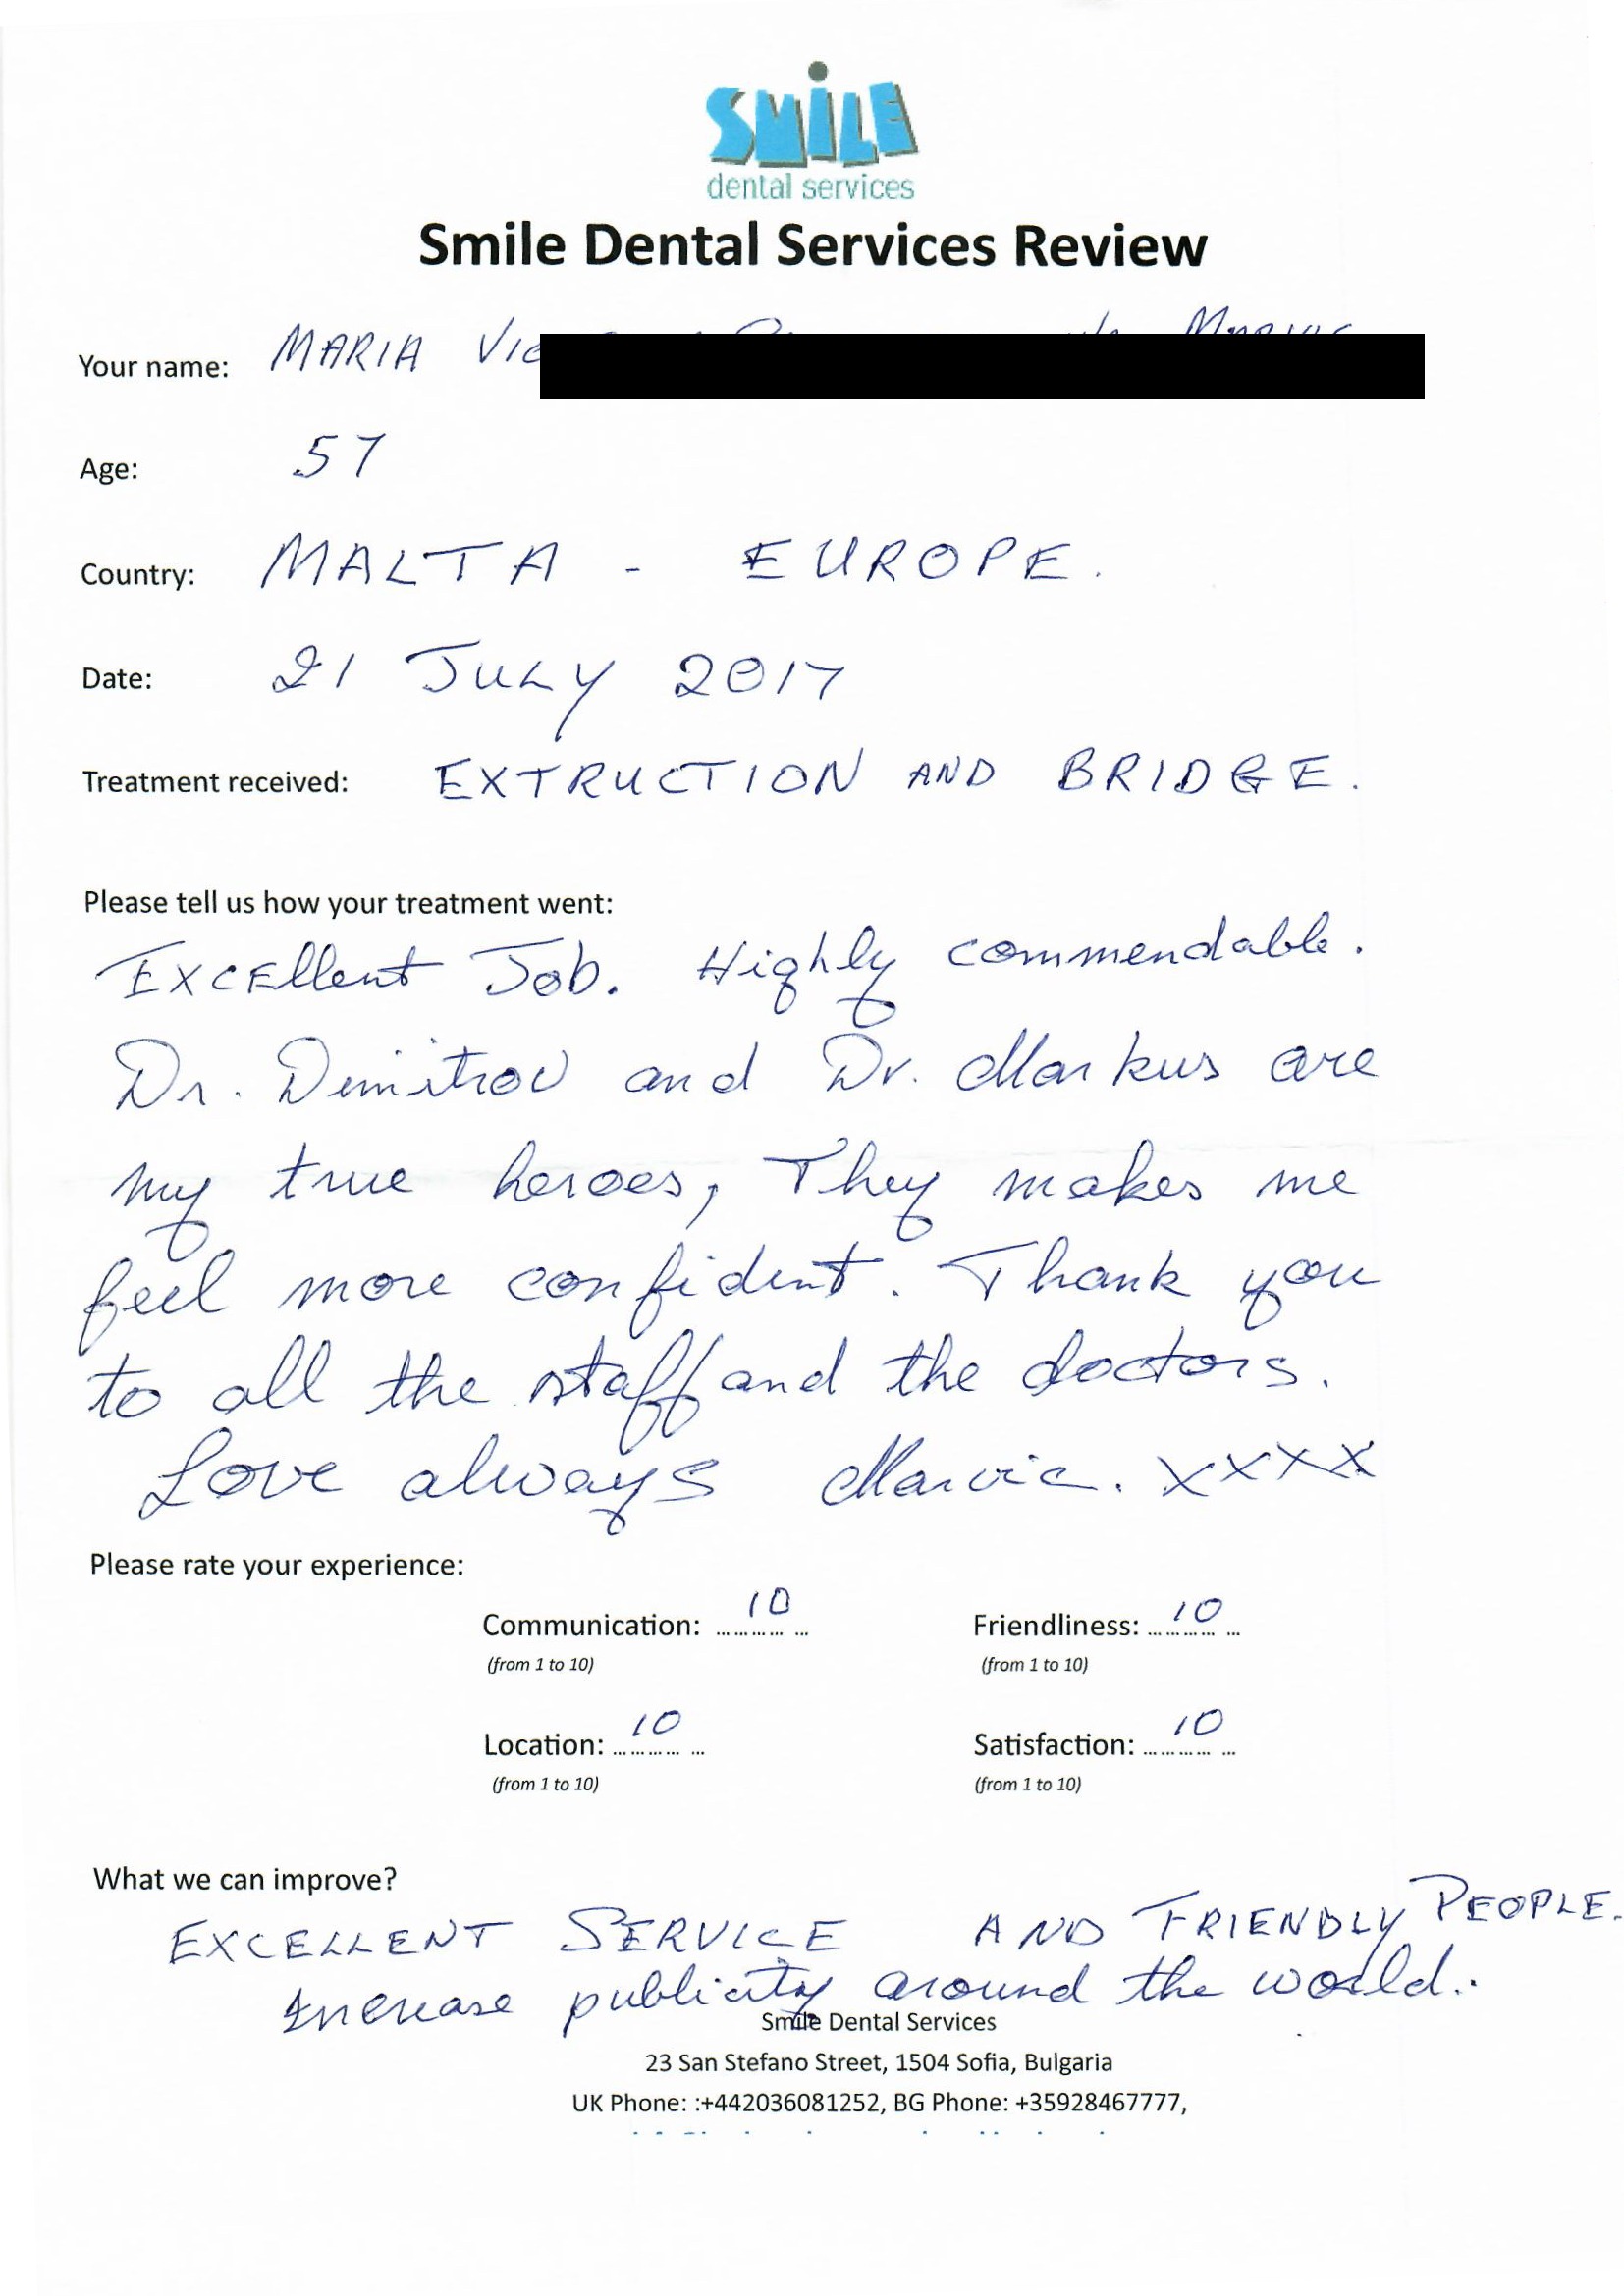 SMiLE
dental services
Smile Dental Services Review
Your name: MARIA
Age: 57
Country: MALTA - EUROPE.
Date: 21 JULY 2017
Treatment received: EXTRUCTION AND BRIDGE.
Please tell us how your treatment went:
Excellent Job. Highly commendable.
Dr. Dimitrov and Dr. Markus are
my true heroes, They makes me
feel more confident. Thank you
to all the staff and the doctors.
Love always Marvic. xxxx
Please rate your experience:
Communication: ............ 10 Friendliness: ............ 10
(from 1 to 10) (from 1 to 10)
Location: ............ 10 Satisfaction: ............ 10
(from 1 to 10) (from 1 to 10)
What we can improve?
EXCELLENT SERVICE AND FRIENDLY PEOPLE.
Increase publicity around the world.
Smile Dental Services
23 San Stefano Street, 1504 Sofia, Bulgaria
UK Phone: :+442036081252, BG Phone: +35928467777,